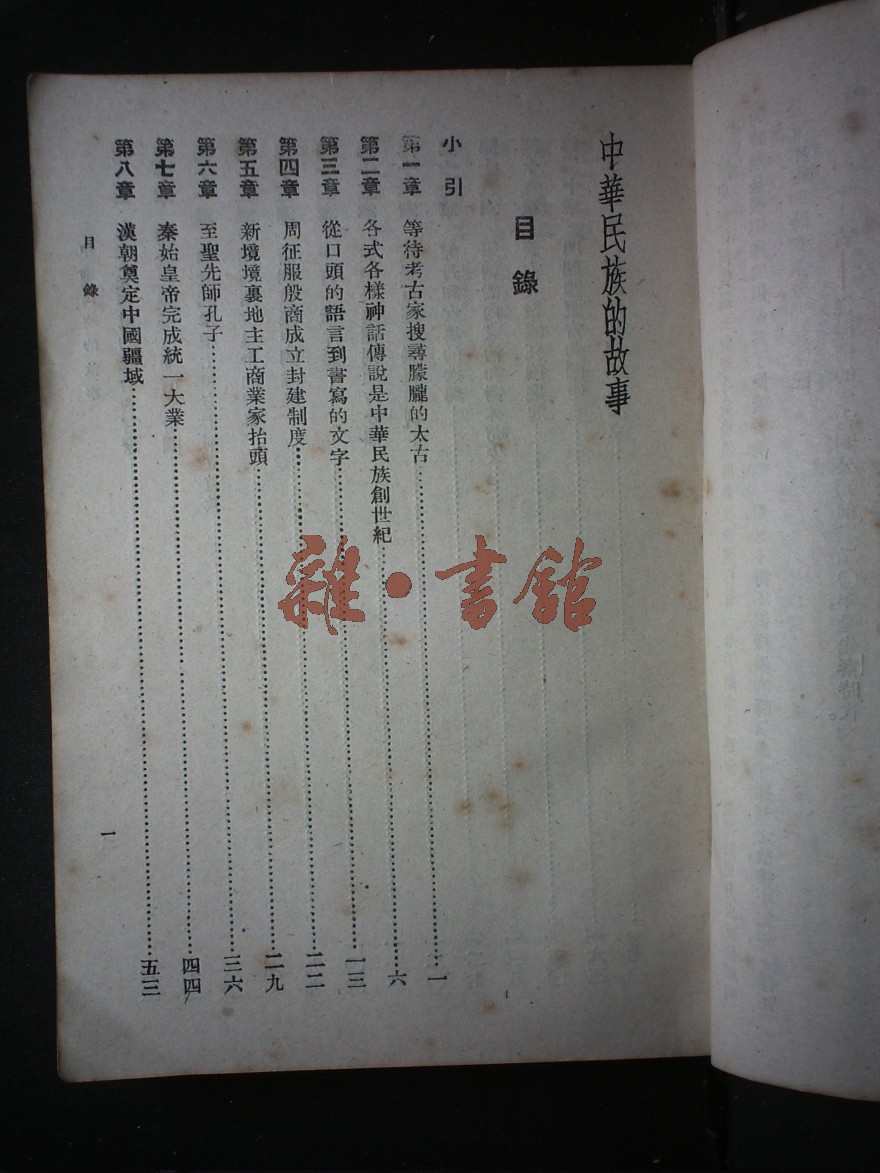 中華民族的故事
目錄
小引
第一章 等待考古家搜尋朦朧的太古……一
第二章 各式各樣神話傳說是中華民族創世紀……六
第三章 從口頭的語言到書寫的文字……一三
第四章 周征服殷商成立封建制度……二二
第五章 新境境裏地主工商業家抬頭……二九
第六章 至聖先師孔子……三六
第七章 秦始皇帝完成統一大業……四四
第八章 漢朝奠定中國疆域……五三
目錄
一
雜·書館